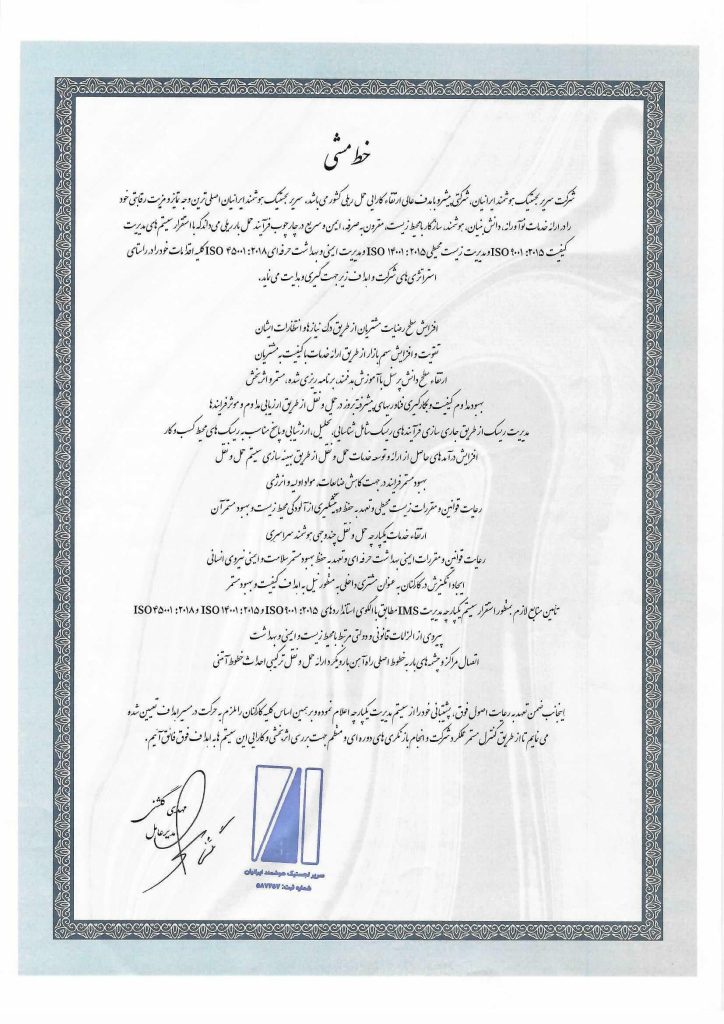 خط مشی
شرکت سریر لجستیک هوشمند ایرانیان، شرکتی پیشرو با هدف عالی ارتقاء کارایی حمل ریلی کشور می باشد. سریر لجستیک هوشمند ایرانیان اصلی ترین وجه تمایز و مزیت رقابتی خود
را در ارائه خدمات نوآورانه، دانش بنیان، هوشمند، سازگار با محیط زیست، مقرون به صرفه، ایمن و سریع در چارچوب فرآیند حمل بار ریلی می داند که با استقرار سیستم های مدیریت
کیفیت ISO ۹۰۰۱:۲۰۱۵ و مدیریت زیست محیطی ISO ۱۴۰۰۱:۲۰۱۵ و مدیریت ایمنی و بهداشت حرفه ای ISO ۴۵۰۰۱:۲۰۱۸ کلیه اقدامات خود را در راستای
استراتژی های شرکت و اهداف زیر جهت گیری و هدایت می نماید.
افزایش سطح رضایت مشتریان از طریق درک نیازها و انتظارات ایشان
تقویت و افزایش سهم بازار از طریق ارائه خدمات با کیفیت به مشتریان
ارتقاء سطح دانش پرسنل با آموزش هدفمند، برنامه ریزی شده، مستمر و اثربخش
بهبود مداوم کیفیت و بکارگیری فناوریهای پیشرفته بروز در حمل و نقل از طریق ارزیابی مداوم و موثر فرایندها
مدیریت ریسک از طریق جاری سازی فرآیندهای ریسک شامل شناسایی، تحلیل، ارزشیابی و پاسخ مناسب به ریسک های محیط کسب و کار
افزایش درآمدهای حاصل از ارائه و توسعه خدمات حمل و نقل از طریق بهینه سازی سیستم حمل و نقل
بهبود مستمر فرایند در جهت کاهش ضایعات، مواد اولیه و انرژی
رعایت قوانین و مقررات زیست محیطی و تعهد به حفظ و پیشگیری از آلودگی محیط زیست و بهبود مستمر آن
ارتقاء خدمات یکپارچه حمل و نقل چند وجهی هوشمند سراسری
رعایت قوانین و مقررات ایمنی بهداشت حرفه ای و تعهد به حفظ بهبود مستمر سلامت و ایمنی نیروی انسانی
ایجاد انگیزش در کارکنان به عنوان مشتری داخلی به منظور نیل به اهداف کیفیت و بهبود مستمر
تامین منابع لازم بمنظور استقرار سیستم یکپارچه مدیریت IMS مطابق با الگوی استانداردهای ISO۹۰۰۱:۲۰۱۵ و ISO ۱۴۰۰۱:۲۰۱۵ و ISO۴۵۰۰۱:۲۰۱۸
پیروی از الزامات قانونی و دولتی مرتبط با محیط زیست و ایمنی و بهداشت
اتصال مراکز و چشمه های بار به خطوط اصلی راه آهن با رویکرد ارائه حمل و نقل ترکیبی احداث خطوط آنتنی
اینجانب ضمن تعهد به رعایت اصول فوق، پشتیبانی خود را از سیستم مدیریت یکپارچه اعلام نموده و بر همین اساس کلیه کارکنان را ملزم به حرکت در مسیر اهداف تعیین شده
می نمایم تا از طریق کنترل مستمر عملکرد شرکت و انجام بازنگری های دوره ای و منظم جهت بررسی اثربخشی و کارایی این سیستم ها به اهداف فوق فائق آئیم.
مهدی گلشنی
مدیرعامل
سریر لجستیک هوشمند ایرانیان
شماره ثبت: ۵۸۷۲۵۷